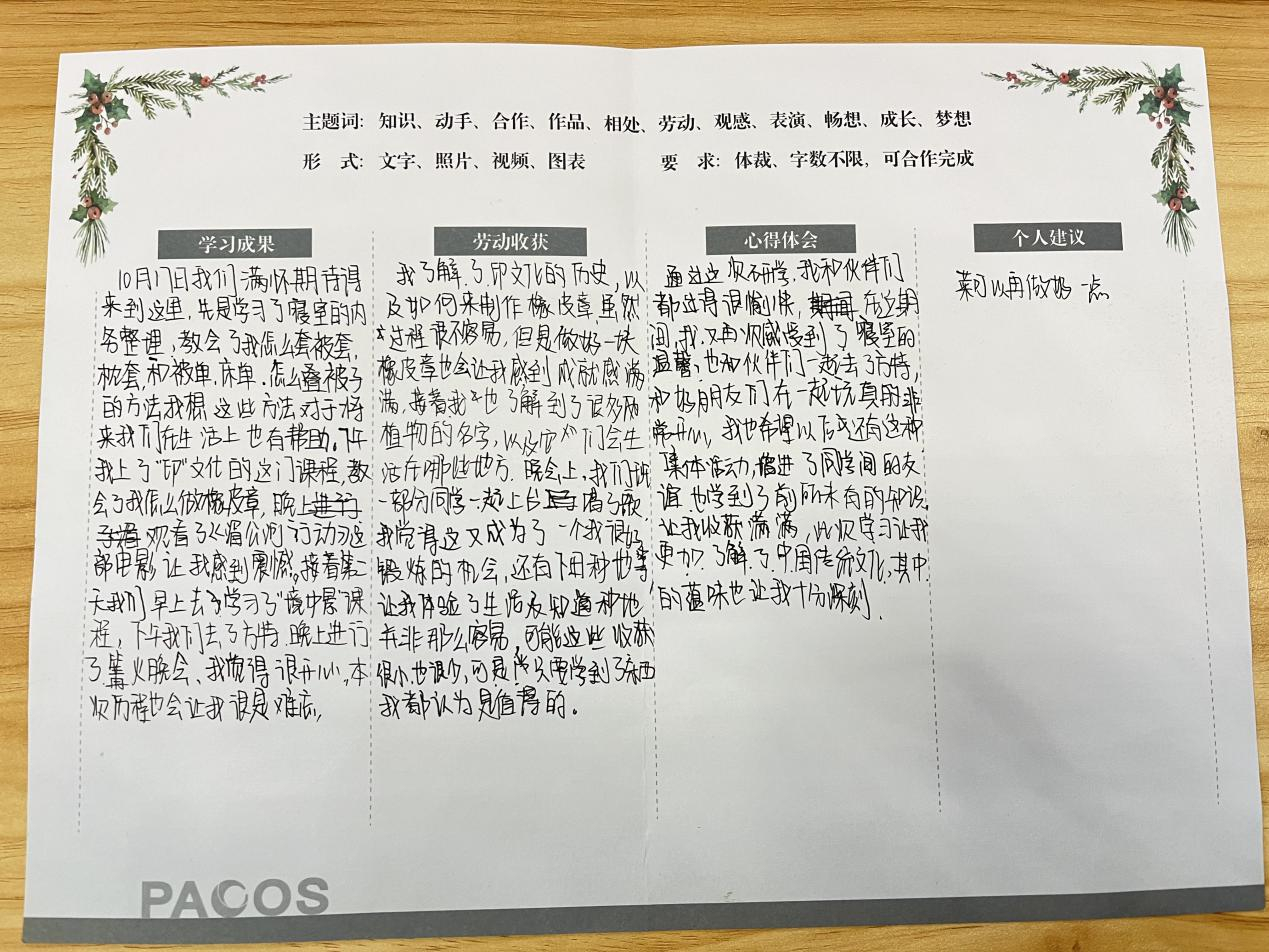 主题词：知识、动手、合作、作品、相处、劳动、观感、表演、畅想、成长、梦想
形 式：文字、照片、视频、图表
要 求：体裁、字数不限，可合作完成
学习成果
10月17日我们满怀期待得
来到这里，先是学习了寝室的内
务整理，教会了我怎么套被套，
枕套，和被单，床单，怎么叠被子
的方法我想这些方法对于将
来我们在生活上也有帮助。下午
我上了"印"文化的这门课程，教
会了我怎么做橡皮章，晚上进行
观看了《湄公河行动》这
部电影让我感到震憾。接着第二
天我们早上去了学习了"镜中景"课
程，下午我们去了方特，晚上进行
了篝火晚会、我觉得很开心。本
次历程也会让我很是难忘，
劳动收获
我了解了印文化的历史，以
及如何来制作橡皮章虽然
过程很不容易，但是做好一块
橡皮章也会让我感到成就感满
满，接着我也了解到了很多
植物的名字，以及它们会生
活在哪些地方．晚会上，我们班
一部分同学一起上台唱了歌，
我觉得这又成为了一个我很好
锻炼的机会，还有下田种地
让我体验了生活及知道种地
并非那么容易，可能这些收获
很小也很少，可是只要学到了东西
我都认为是值得的。
心得体会
通过这次研学，我和伙伴们
都过得很愉快，期间在这期
间，我又再次感受到了寝室的
温馨，也和伙伴们一起去了方特，
和好朋友们在一起玩真的非
常开心，我也希望以后还有这种
集体活动，促进了同学间的友
谊也学到了前所未有的知识
让我收获满满，此次学习让我
更加了解了中国传统文化，其中
的蕴味也让我十分深刻．
个人建议
菜可以再做好一点
PACOS